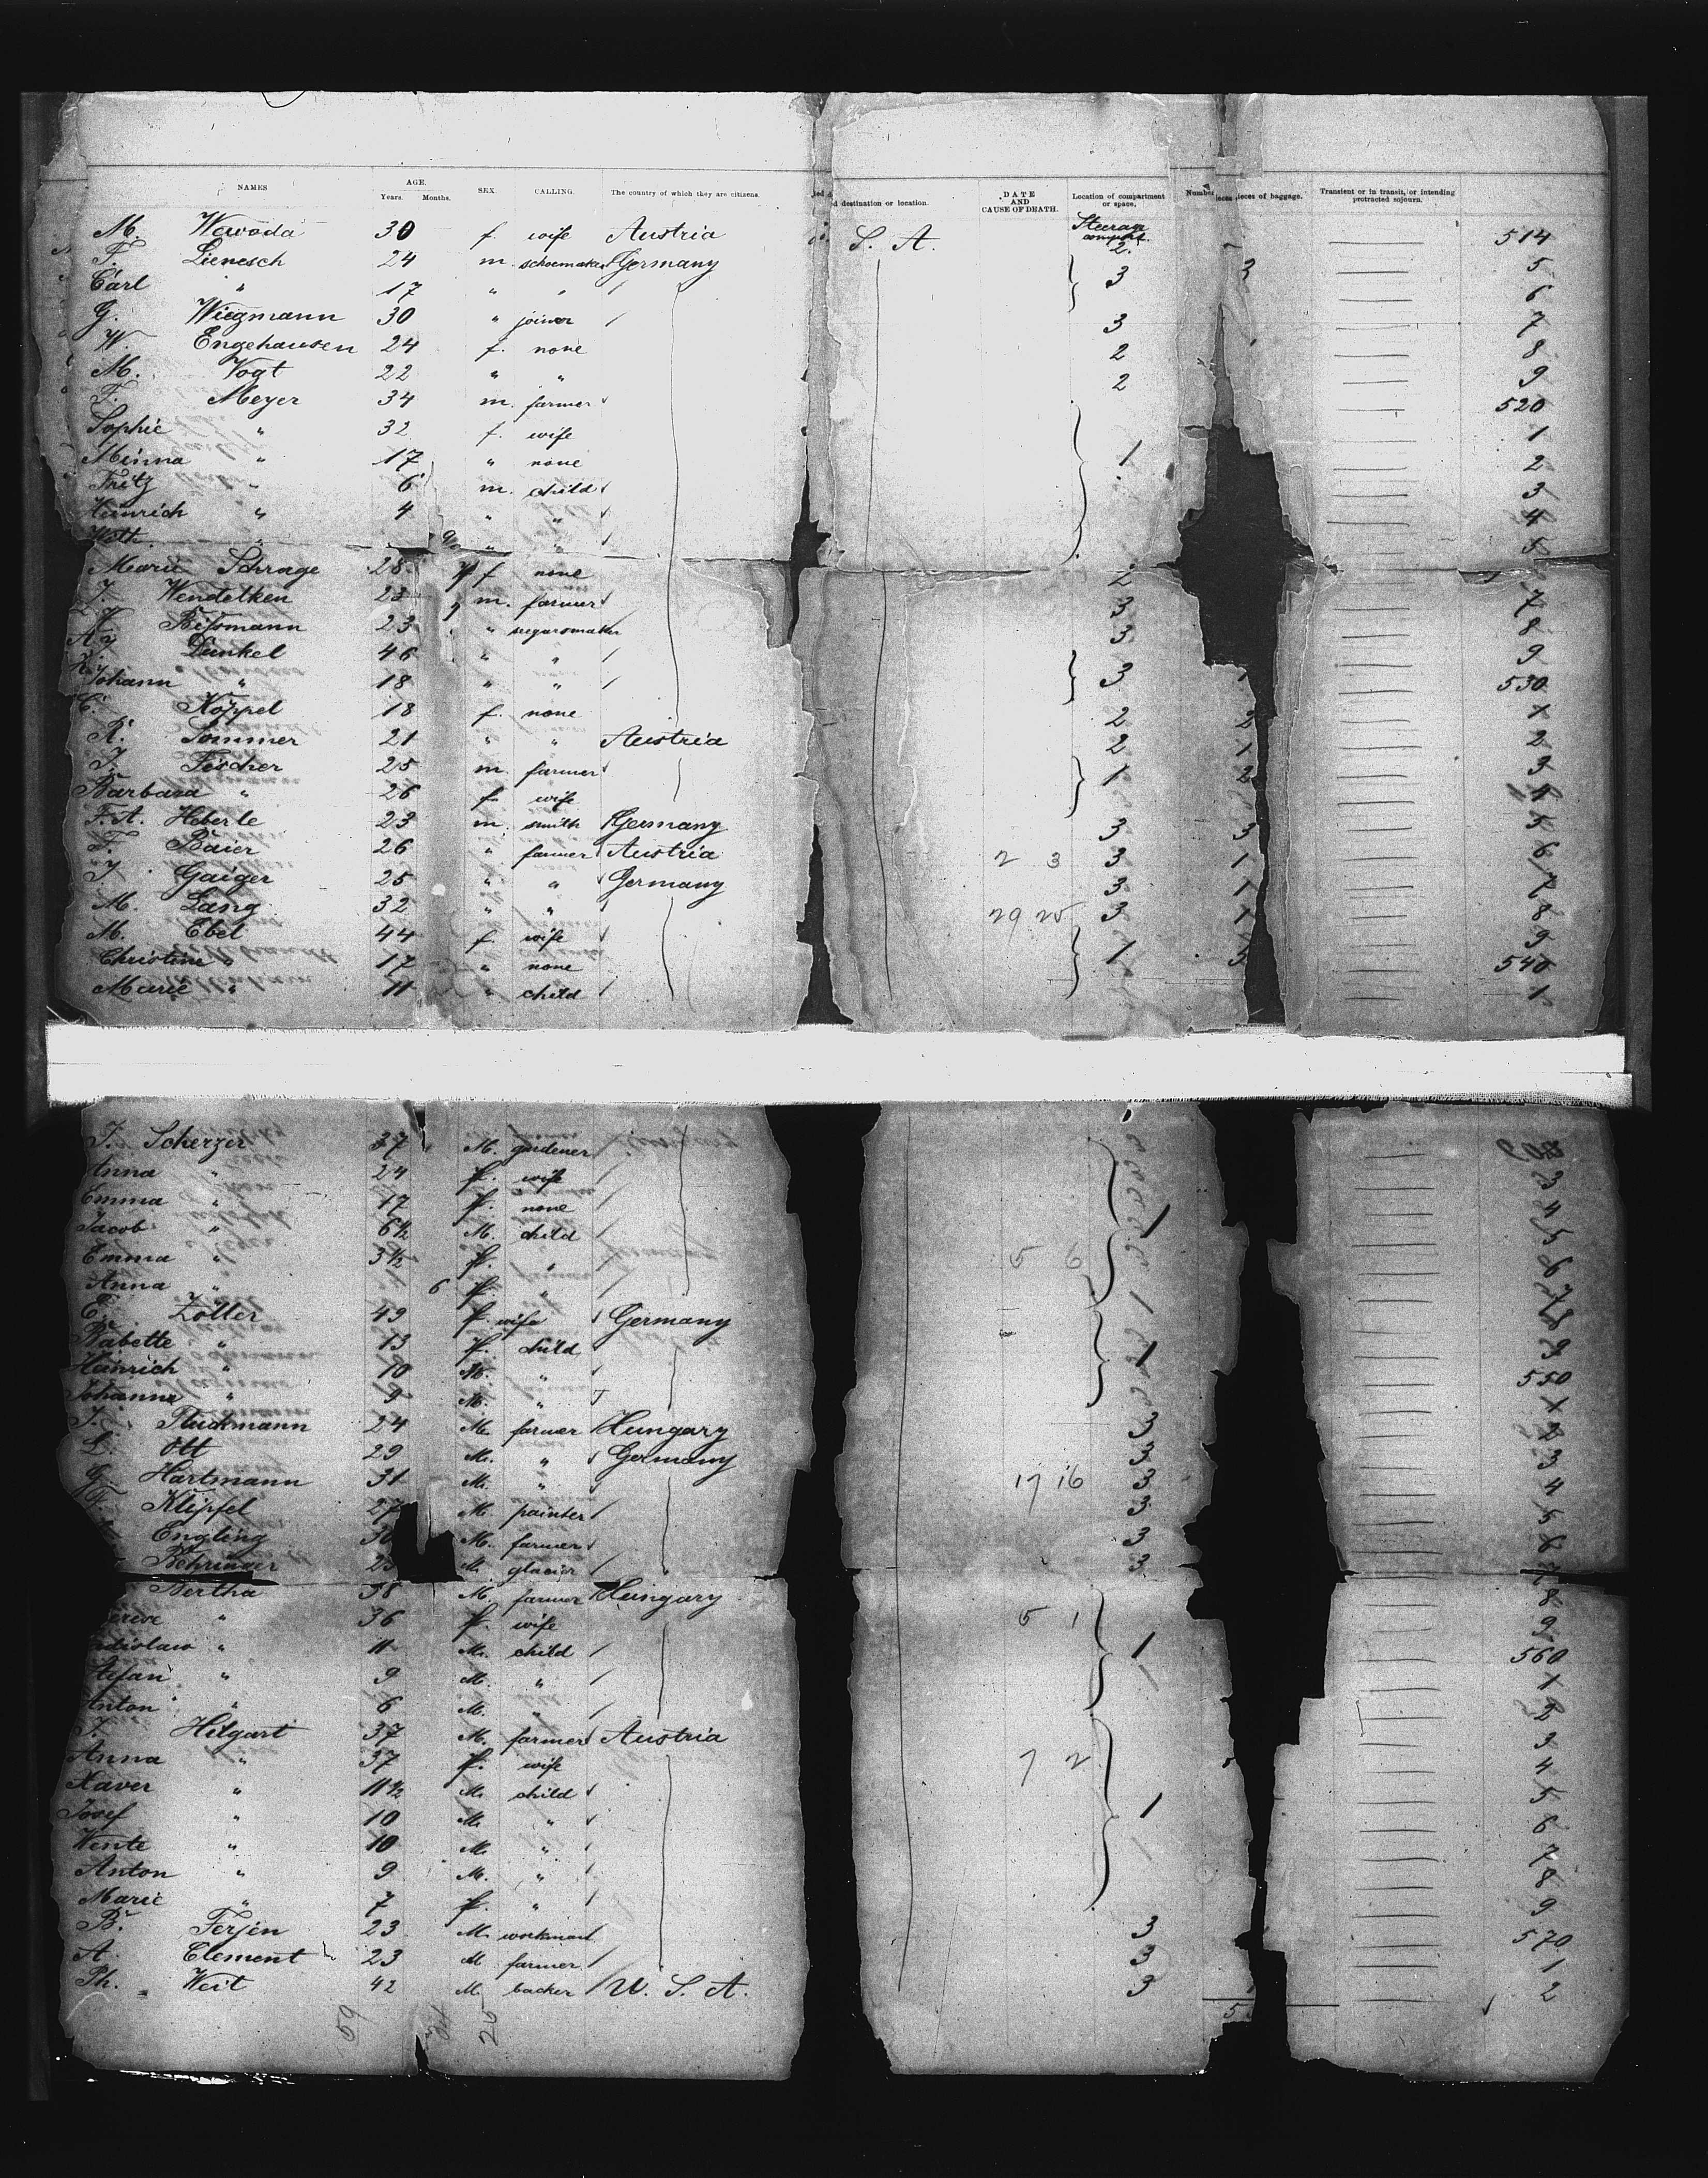 NAMES AGE. Years. Months. SEX. CALLING. The country of which they are citizens. d destination or location. DATE AND CAUSE OF DEATH. Location of compartment or space. Number pieces of baggage. Transient or in transit, or intending protracted sojourn.
M. Wewoda 30 f. wife Austria S. A. Steerage compart. 2. 514
F. Lienesch 24 m. schoemaker Germany 3 3 5
Carl " 17 " " 6
G. Wiegmann 30 " joiner 3 7
W. Engehausen 24 f. none 2 8
M. Vogt 22 " " 2 9
F. Meyer 34 m. farmer 520
Sophie " 32 f. wife 1
Minna " 17 " none 1 2
Fritz " 6 m. child 3
Heinrich " 4 " " 4
" " " 5
Marie Schrage 28 f none 2
J. Wendelken 23 m. farmer 3 7
Bissmann 23 " segarsmaker 3 8
Dunkel 46 " " 9
Johann " 18 " " 3 1 530
C. Koppel 18 f. none 2 2 1
R. Sommer 21 " " Austria 2 1 2
J. Fischer 25 m. farmer 1 2 3
Barbara " 26 f. wife 4
F. A. Heberle 23 m. smith Germany 3 3 5
F. Baier 26 " farmer Austria 2 3 3 1 6
J. Gaiger 25 " " Germany 3 1 7
M. Lang 32 " " 29 25 3 1 8
M. Ebel 44 f. wife 9
Christine " 17 " none 1 3 540
Marie " 11 " child 1
J. Scherzer 37 M. gardener
Anna " 24 f. wife 3
Emma " 17 f. none 4
Jacob " 6½ M. child 1 5
Emma " 3½ f. " 5 6 6
Anna " 6 f. " 7
E. Zoller 49 f. wife Germany 8
Babette " 13 f. child 1 9
Heinrich " 10 M. " 550
Johanna " 9 M. " 1
J. Stuckmann 24 M. farmer Hungary 3 2
L. Ott 29 M. " Germany 3 3
G. Hartmann 31 M. " 17 16 3 4
F. Klipfel 27 M. painter 3 5
Engling 30 M. farmer 3 6
Behringer 25 M. glacier 3
Bertha 38 M. farmer Hungary 8
" 36 f. wife 5 1 9
" 11 M. child 1 560
Stefan " 9 M. " 1
Anton " 6 M. " 2
J. Hilgart 37 M. farmer Austria 3
Anna " 37 f. wife 7 2 4
Xaver " 11½ M. child 5
Josef " 10 M. " 1 6
Wente " 10 M. " 7
Anton " 9 M. " 8
Marie " 7 f. " 9
B. Ferjen 23 M. workman 3 570
A. Clement 23 M farmer 3 1
Ph. Weit 42 M. backer U. S. A. 3 2
59 34 25 5